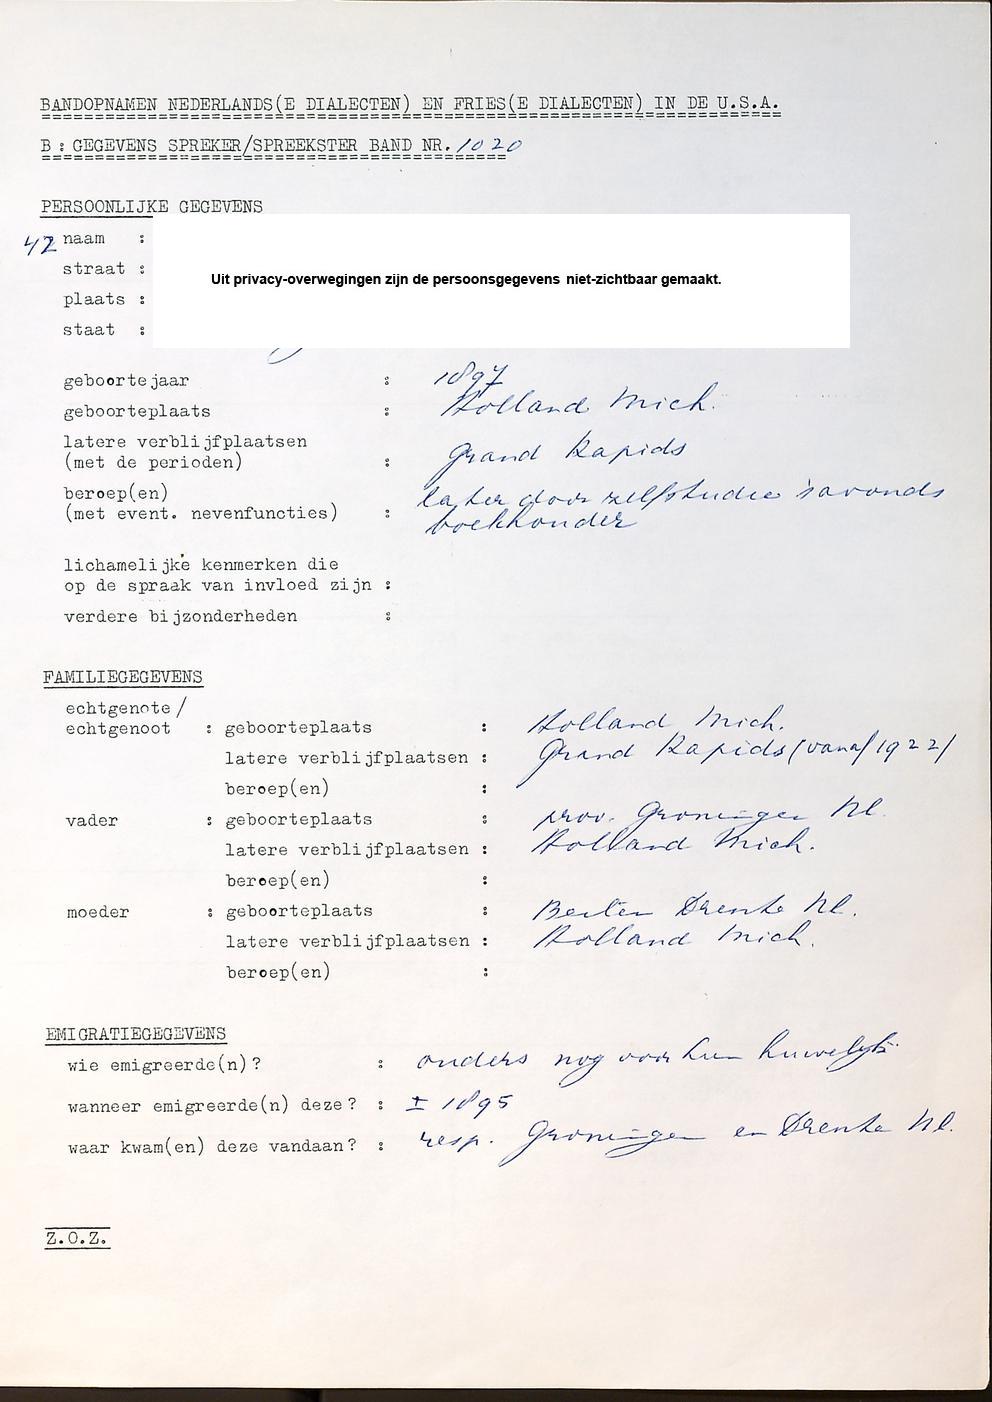 BANDOPNAMEN NEDERLANDS(E DIALECTEN) EN FRIES(E DIALECTEN) IN DE U.S.A.
B: GEGEVENS SPREKER/SPREEKSTER BAND NR. 1020
PERSOONLIJKE GEGEVENS
42 naam :
straat :
Uit privacy-overwegingen zijn de persoonsgegevens niet-zichtbaar gemaakt.
plaats :
staat :
geboortejaar : 1897
geboorteplaats : Holland Mich.
latere verblijfplaatsen
(met de perioden) : Grand Rapids
beroep(en) later door zelfstudie 's avonds
(met event. nevenfuncties) : boekhouder
lichamelijke kenmerken die
op de spraak van invloed zijn :
verdere bijzonderheden :
FAMILIEGEGEVENS
echtgenote/
echtgenoot : geboorteplaats : Holland Mich.
latere verblijfplaatsen : Grand Rapids (vanaf 1922)
beroep(en) :
vader : geboorteplaats : prov. Groningen Nl.
latere verblijfplaatsen : Holland Mich.
beroep(en) :
moeder : geboorteplaats : Drente Nl.
latere verblijfplaatsen : Holland Mich.
beroep(en) :
EMIGRATIEGEGEVENS
wie emigreerde(n)? : ouders nog voor hun huwelijk
wanneer emigreerde(n) deze? : ± 1895
waar kwam(en) deze vandaan? : resp. Groningen en Drente Nl.
Z.O.Z.